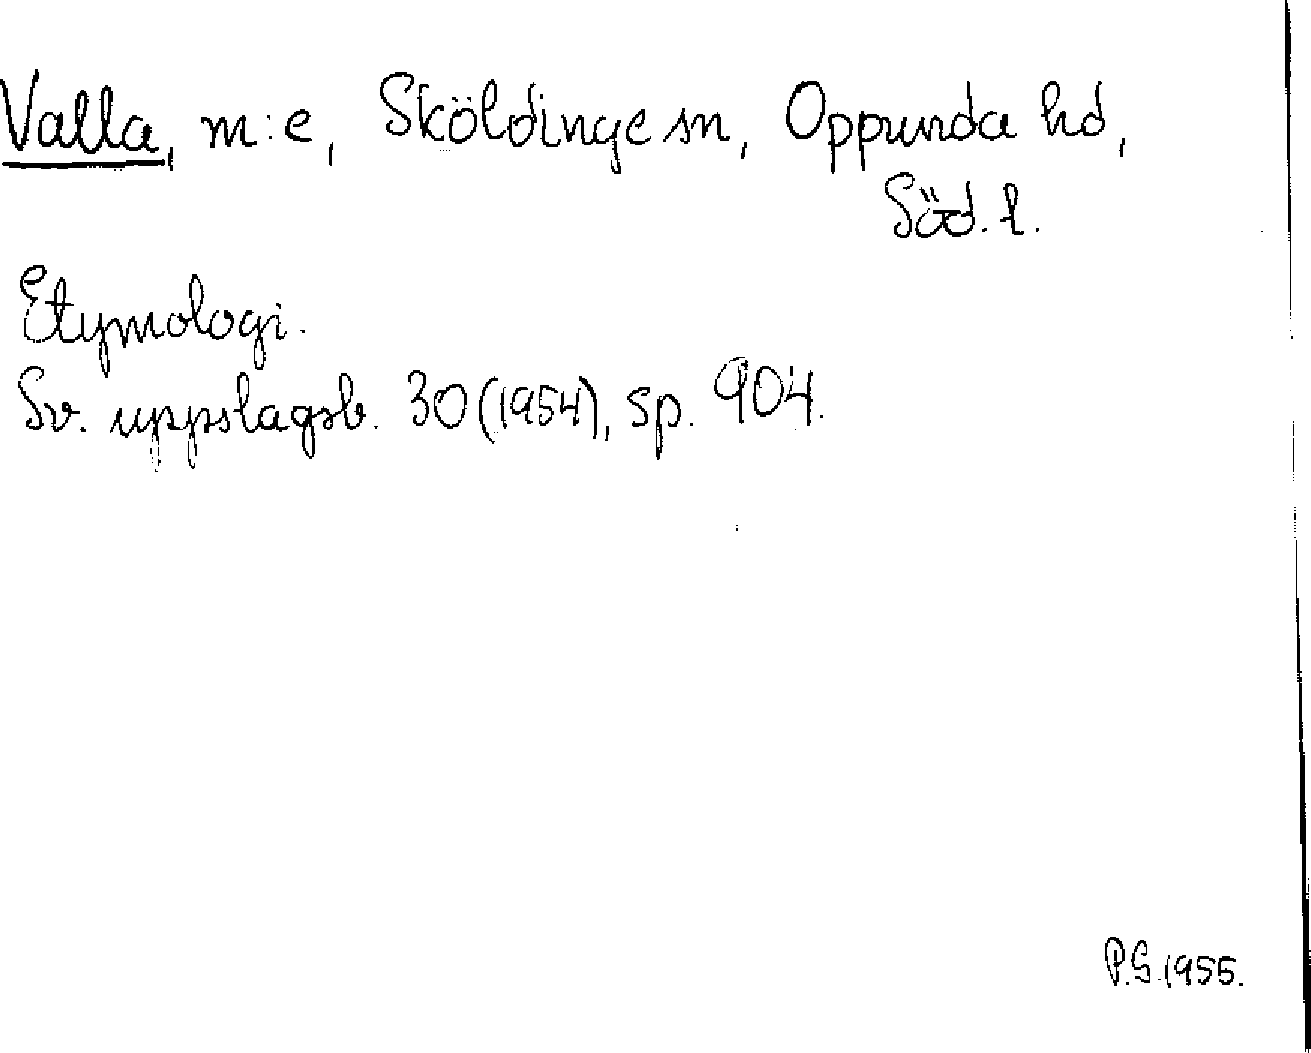 Valla, m:e, Sköldinge sn, Oppunda hd,
Söd. l.
Etymologi.
Sv. uppslagsb. 30 (1954), sp. 904.
P.G. 1955.